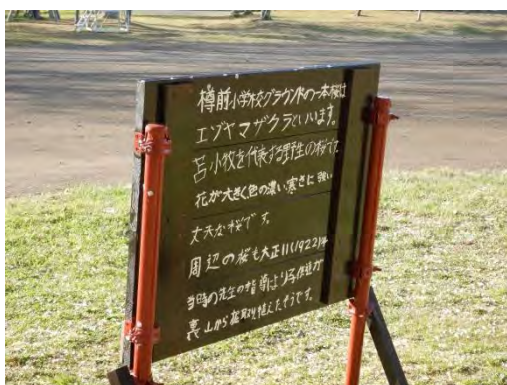 樽前小学校グラウンドの一本桜は
エゾヤマザクラといいます。
苫小牧を代表する野生の桜で
花が大きく色の濃い寒さに強い
丈夫な桜です。
周辺の桜も大正11(1922)年
当時の先生の指導により
裏山から植えたそうです。